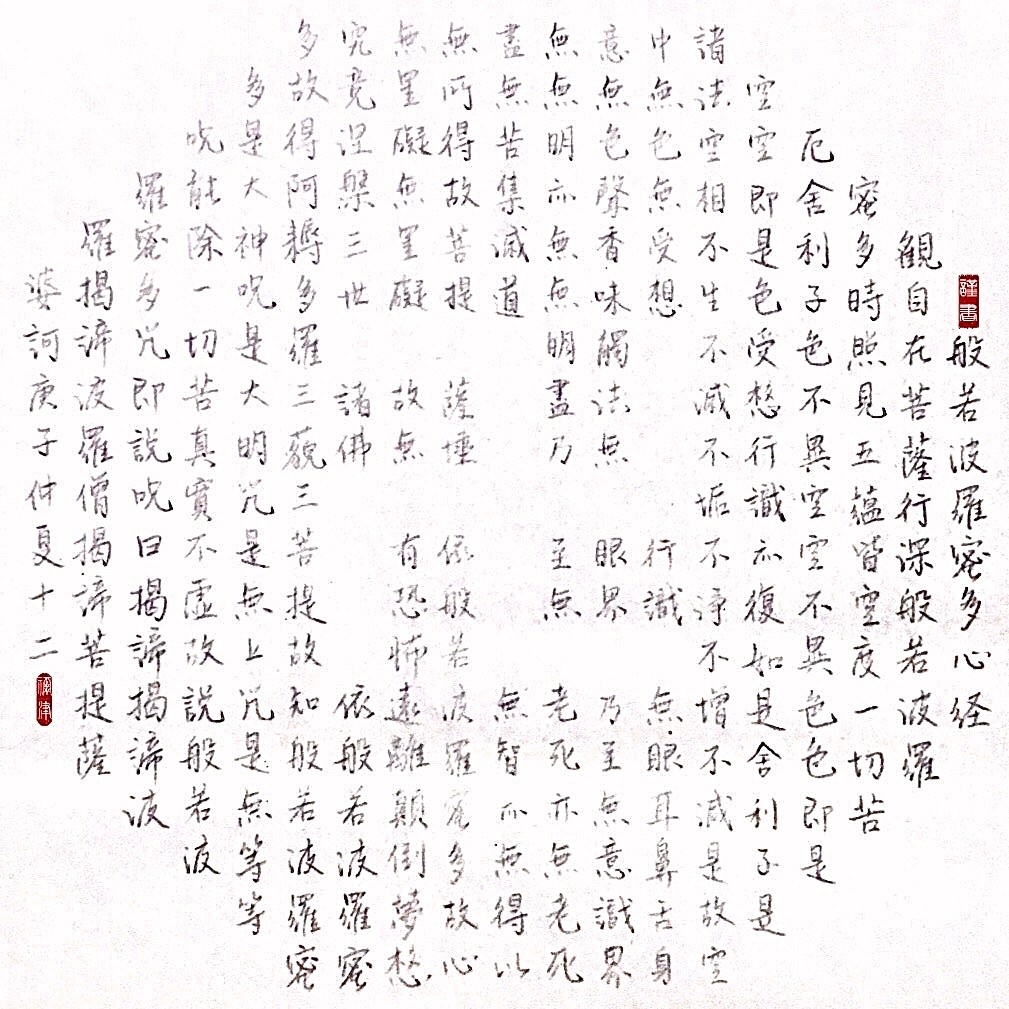 謹書
般若波羅蜜多心経
観自在菩薩行深般若波羅
蜜多時照見五蘊皆空度一切苦
厄舍利子色不異空空不異色色即是
空空即是色受想行識亦復如是舍利子是
諸法空相不生不滅不垢不浄不增不減是故空
中無色無受想 行識 無眼耳鼻舌身
意無色聲香味觸法無 眼界 乃至無意識界
無無明亦無無明盡乃 至無 老死亦無老死
盡無苦集滅道 無智亦無得以
無所得故菩提 薩埵 依般若波羅蜜多故心
無罣礙無罣礙 故無 有恐怖遠離顛倒夢想
究竟涅槃三世 諸佛 依般若波羅蜜
多故得阿耨多羅三藐三菩提故知般若波羅蜜
多是大神呪是大明咒是無上咒是無等等
呪能除一切苦真實不虛故説般若波
羅蜜多咒即説呪曰揭諦揭諦波
羅揭諦波羅僧揭諦菩提薩
婆訶庚子仲夏十二